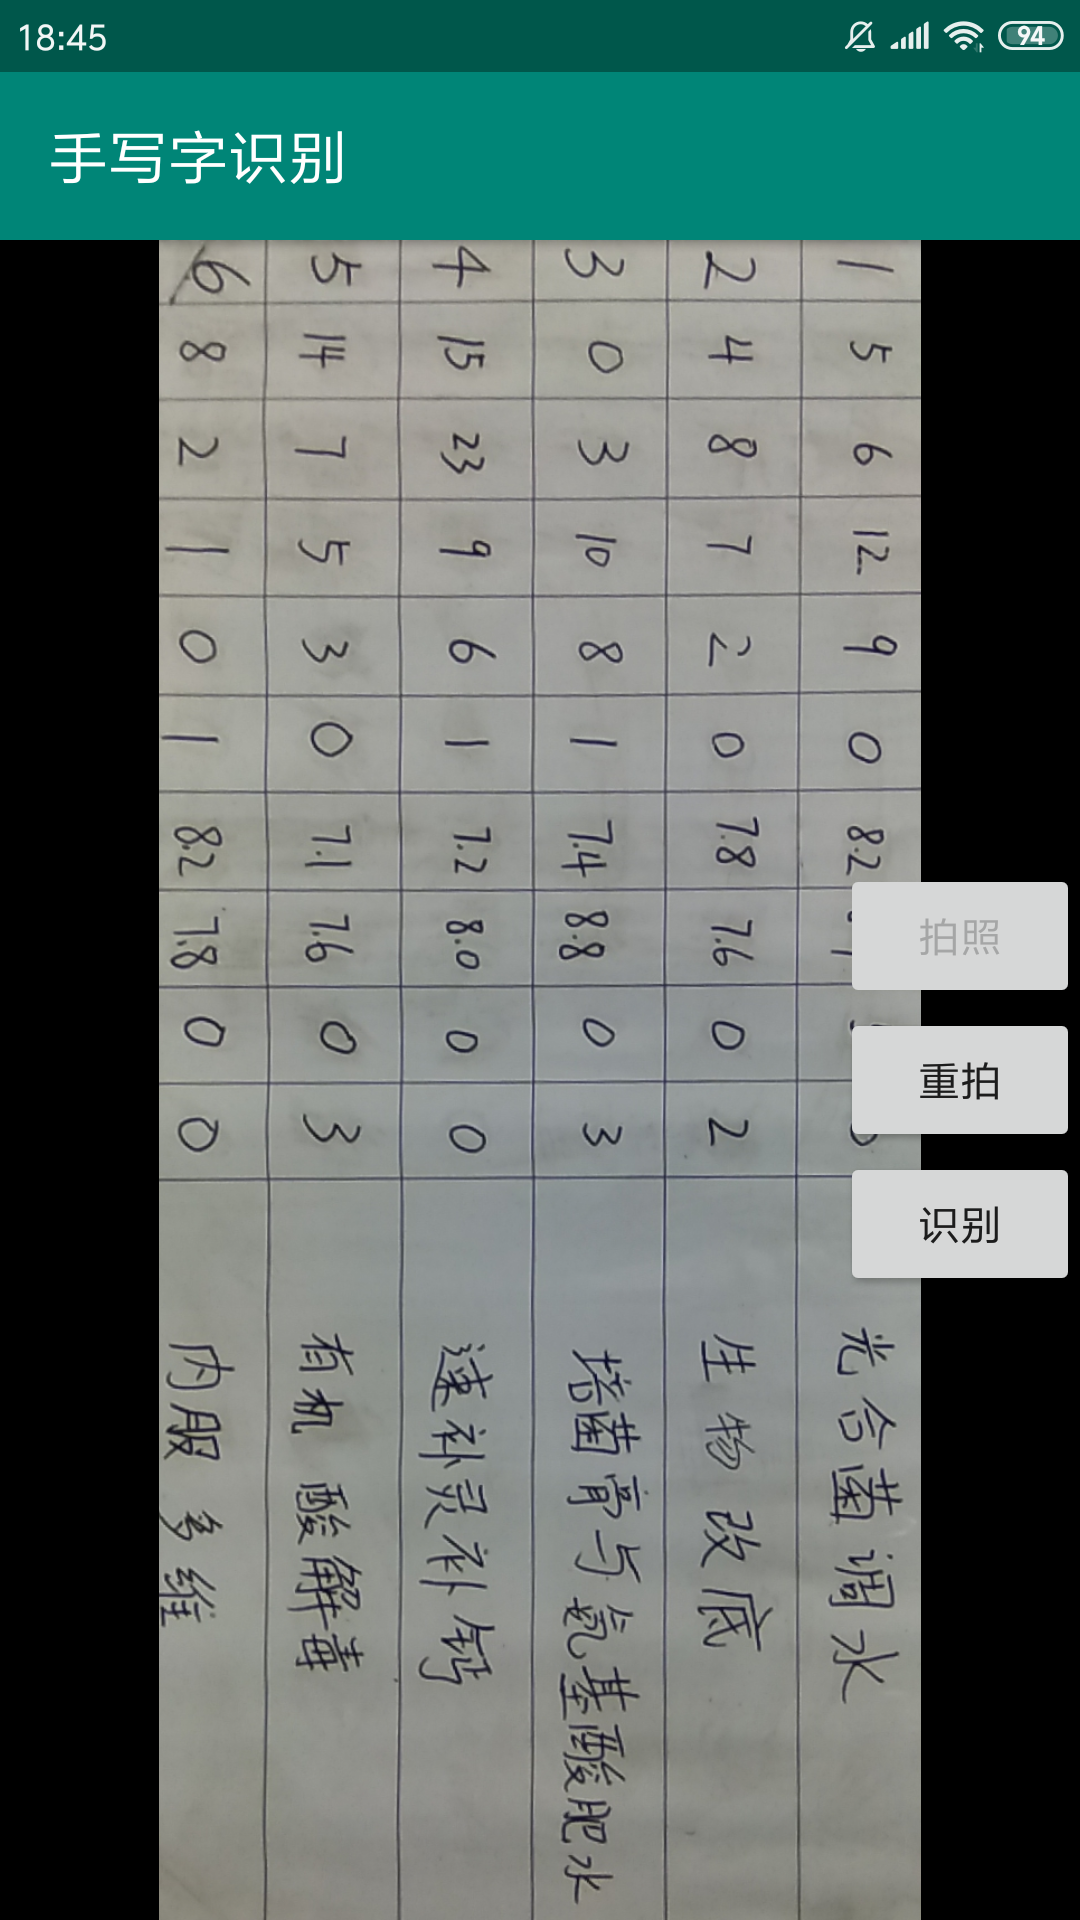 18:45
94
手写字识别
1 5 6 12 9 0 8.2 光合菌调水
2 4 8 7 2 0 7.8 7.6 0 2 生物改底
3 0 3 10 8 1 7.4 8.8 0 3 培菌膏与氨基酸肥水
4 15 23 9 6 1 7.2 8.0 0 0 速补灵补钙
5 14 7 5 3 0 7.1 7.6 0 3 有机酸解毒
6 8 2 1 0 1 8.2 7.8 0 0 内服多维
拍照
重拍
识别